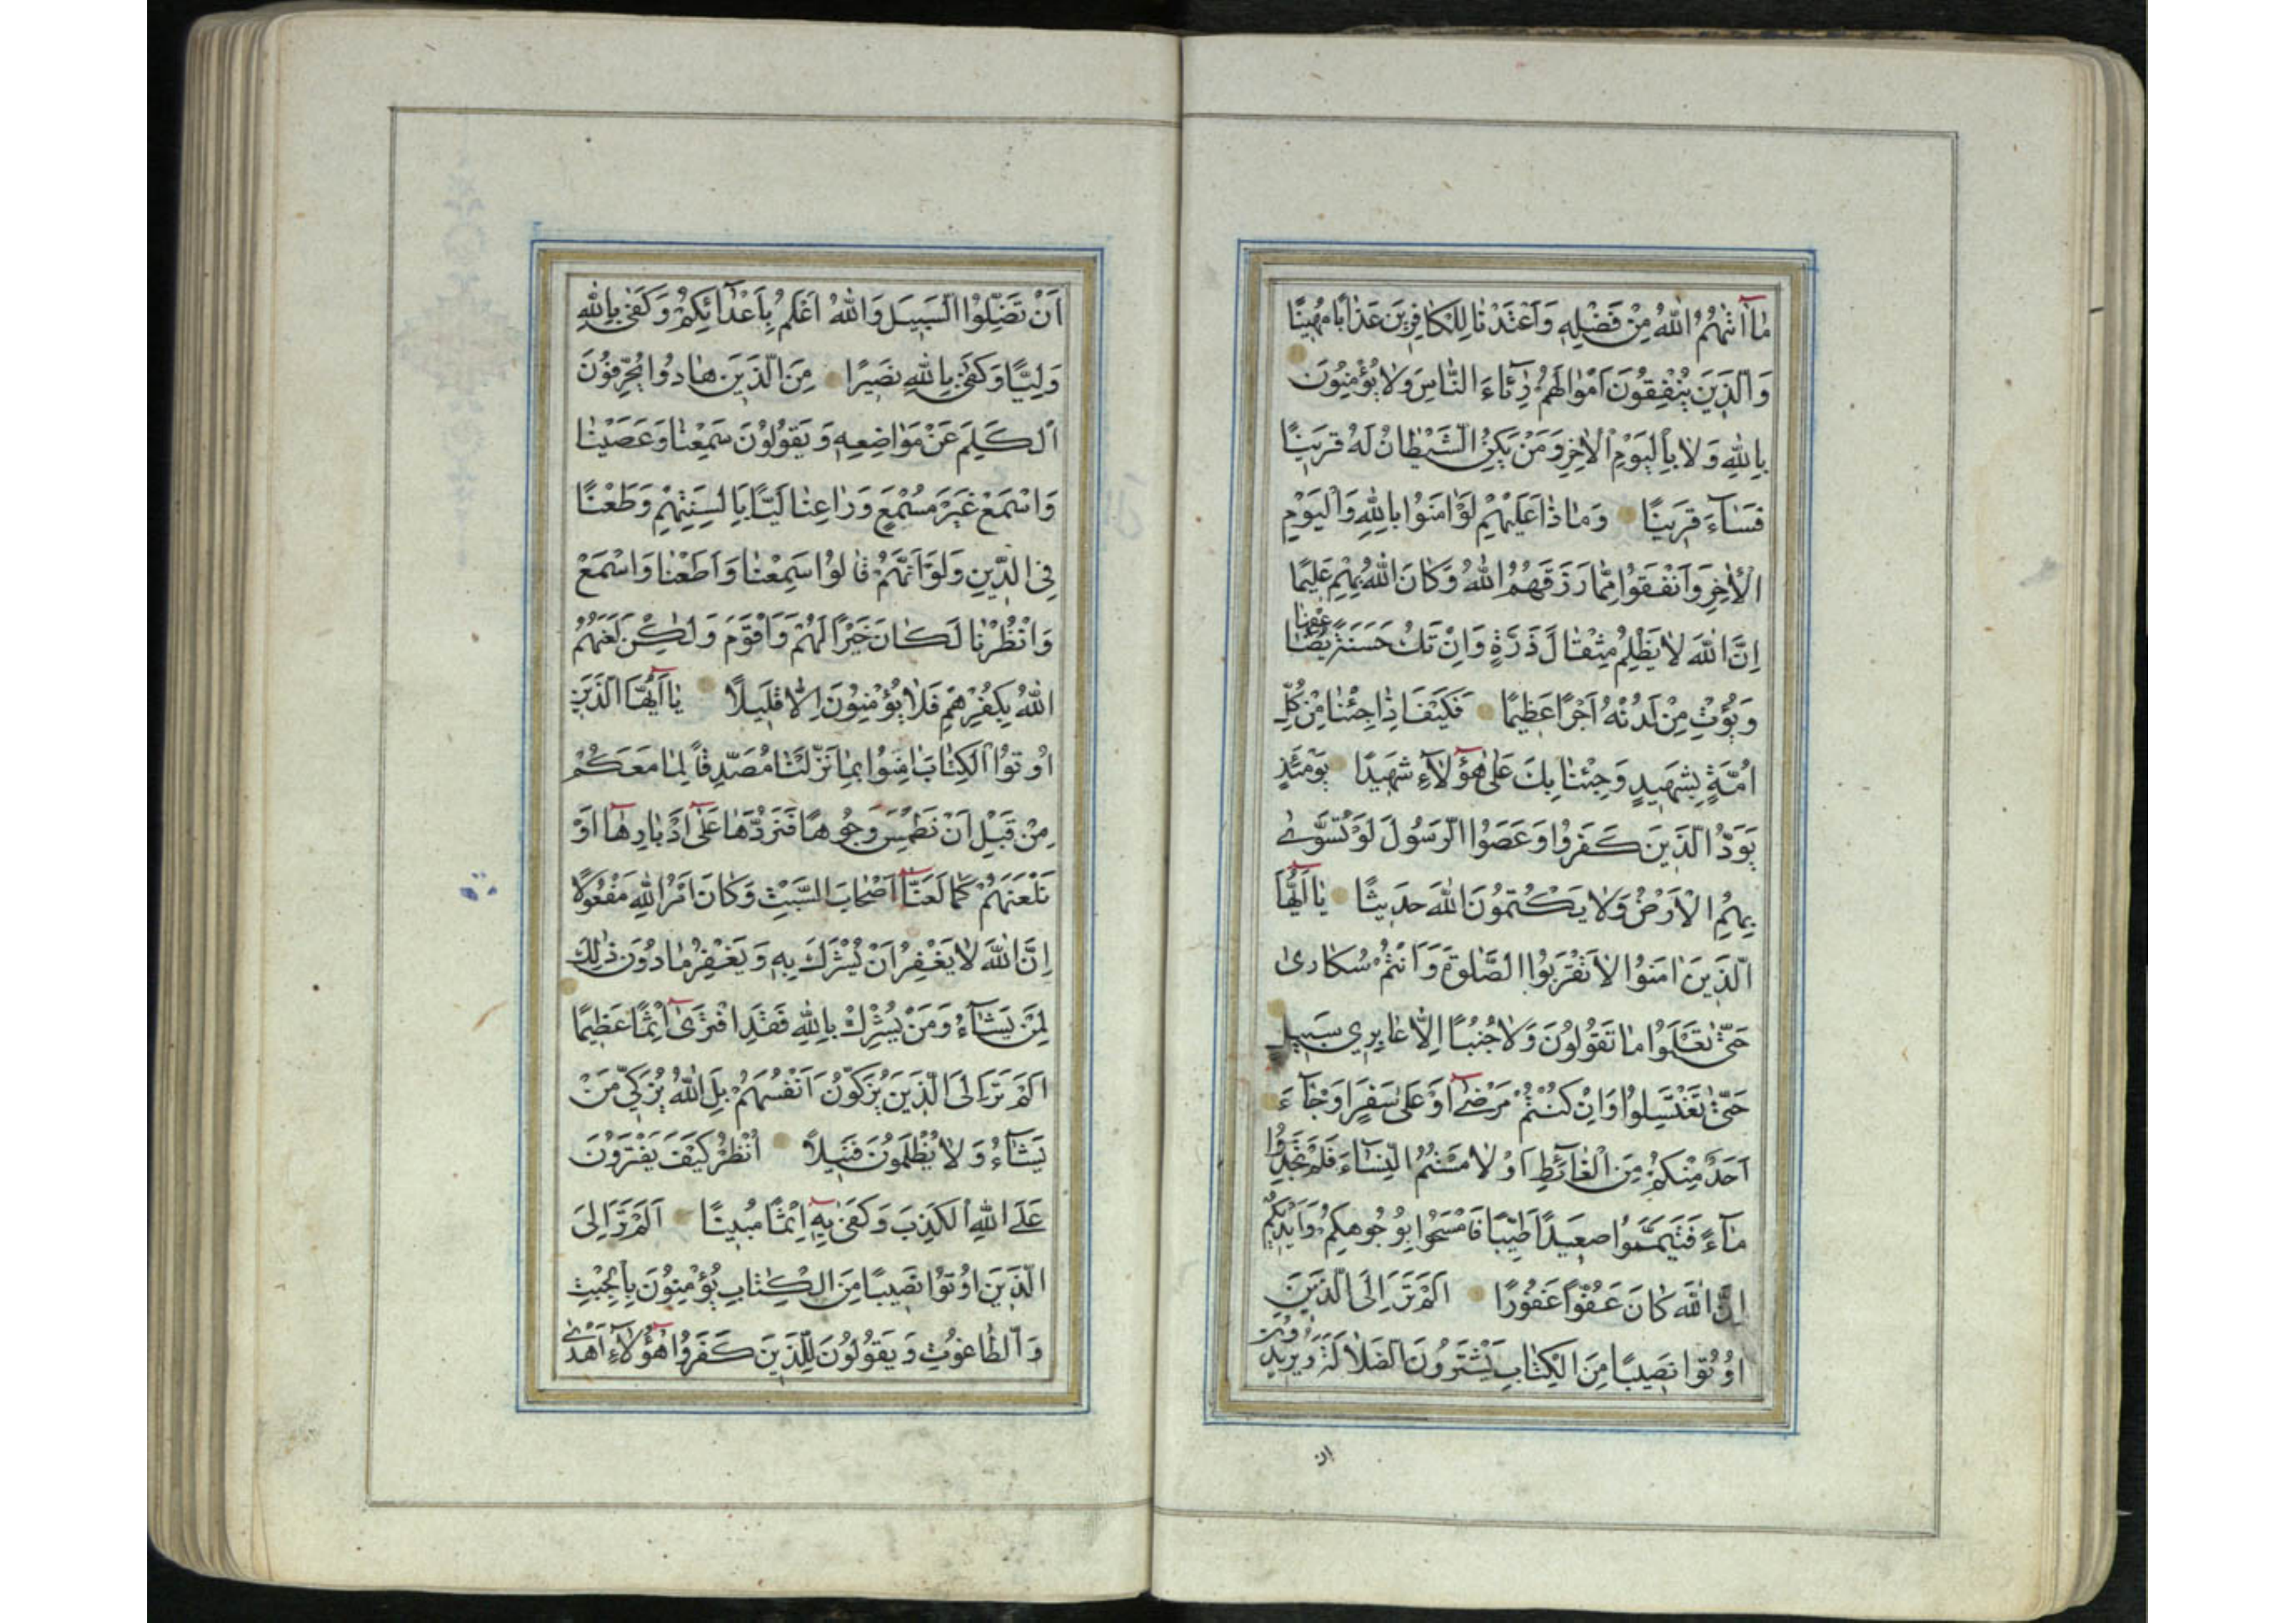 مٰا اٰتٰىهُمُ اللّٰهُ مِنْ فَضْلِهِ وَاَعْتَدْنٰا لِلْكٰافِرِينَ عَذٰابًا مُهِينًا
وَالَّذِينَ يُنْفِقُونَ اَمْوٰالَهُمْ رِئٰآءَ النّٰاسِ وَلٰا يُؤْمِنُونَ
بِاللّٰهِ وَلٰا بِالْيَوْمِ الْاٰخِرِ وَمَنْ يَكُنِ الشَّيْطٰانُ لَهُ قَرِينًا
فَسٰآءَ قَرِينًا وَمٰا ذٰا عَلَيْهِمْ لَوْ اٰمَنُوا بِاللّٰهِ وَالْيَوْمِ
الْاٰخِرِ وَاَنْفَقُوا مِمّٰا رَزَقَهُمُ اللّٰهُ وَكٰانَ اللّٰهُ بِهِمْ عَلِيمًا
اِنَّ اللّٰهَ لٰا يَظْلِمُ مِثْقٰالَ ذَرَّةٍ وَاِنْ تَكُ حَسَنَةً يُضٰاعِفْهٰا
وَيُؤْتِ مِنْ لَدُنْهُ اَجْرًا عَظِيمًا فَكَيْفَ اِذٰا جِئْنٰا مِنْ كُلِّ
اُمَّةٍ بِشَهِيدٍ وَجِئْنٰا بِكَ عَلىٰ هٰؤُلٰآءِ شَهِيدًا يَوْمَئِذٍ
يَوَدُّ الَّذِينَ كَفَرُوا وَعَصَوُا الرَّسُولَ لَوْ تُسَوّٰى
بِهِمُ الْاَرْضُ وَلٰا يَكْتُمُونَ اللّٰهَ حَدِيثًا يٰا اَيُّهَا
الَّذِينَ اٰمَنُوا لٰا تَقْرَبُوا الصَّلٰوةَ وَاَنْتُمْ سُكٰارىٰ
حَتّٰى تَعْلَمُوا مٰا تَقُولُونَ وَلٰا جُنُبًا اِلّٰا عٰابِرِي سَبِيلٍ
حَتّٰى تَغْتَسِلُوا وَاِنْ كُنْتُمْ مَرْضٰى اَوْ عَلىٰ سَفَرٍ اَوْ جٰآءَ
اَحَدٌ مِنْكُمْ مِنَ الْغٰآئِطِ اَوْ لٰامَسْتُمُ النِّسٰآءَ فَلَمْ تَجِدُوا
مٰآءً فَتَيَمَّمُوا صَعِيدًا طَيِّبًا فَامْسَحُوا بِوُجُوهِكُمْ وَاَيْدِيكُمْ
اِنَّ اللّٰهَ كٰانَ عَفُوًّا غَفُورًا اَلَمْ تَرَ اِلَى الَّذِينَ
اُوتُوا نَصِيبًا مِنَ الْكِتٰابِ يَشْتَرُونَ الضَّلٰالَةَ وَيُرِيدُونَ
ان
اَنْ تَضِلُّوا السَّبِيلَ وَاللّٰهُ اَعْلَمُ بِاَعْدٰآئِكُمْ وَكَفىٰ بِاللّٰهِ
وَلِيًّا وَكَفىٰ بِاللّٰهِ نَصِيرًا مِنَ الَّذِينَ هٰادُوا يُحَرِّفُونَ
الْكَلِمَ عَنْ مَوٰاضِعِهِ وَيَقُولُونَ سَمِعْنٰا وَعَصَيْنٰا
وَاسْمَعْ غَيْرَ مُسْمَعٍ وَرٰاعِنٰا لَيًّا بِاَلْسِنَتِهِمْ وَطَعْنًا
فِي الدِّينِ وَلَوْ اَنَّهُمْ قٰالُوا سَمِعْنٰا وَاَطَعْنٰا وَاسْمَعْ
وَانْظُرْنٰا لَكٰانَ خَيْرًا لَهُمْ وَاَقْوَمَ وَلٰكِنْ لَعَنَهُمُ
اللّٰهُ بِكُفْرِهِمْ فَلٰا يُؤْمِنُونَ اِلّٰا قَلِيلًا يٰا اَيُّهَا الَّذِينَ
اُوتُوا الْكِتٰابَ اٰمِنُوا بِمٰا نَزَّلْنٰا مُصَدِّقًا لِمٰا مَعَكُمْ
مِنْ قَبْلِ اَنْ نَطْمِسَ وُجُوهًا فَنَرُدَّهٰا عَلىٰ اَدْبٰارِهٰا اَوْ
نَلْعَنَهُمْ كَمٰا لَعَنّٰا اَصْحٰابَ السَّبْتِ وَكٰانَ اَمْرُ اللّٰهِ مَفْعُولًا
اِنَّ اللّٰهَ لٰا يَغْفِرُ اَنْ يُشْرَكَ بِهِ وَيَغْفِرُ مٰا دُونَ ذٰلِكَ
لِمَنْ يَشٰآءُ وَمَنْ يُشْرِكْ بِاللّٰهِ فَقَدِ افْتَرىٰ اِثْمًا عَظِيمًا
اَلَمْ تَرَ اِلَى الَّذِينَ يُزَكُّونَ اَنْفُسَهُمْ بَلِ اللّٰهُ يُزَكِّي مَنْ
يَشٰآءُ وَلٰا يُظْلَمُونَ فَتِيلًا اُنْظُرْ كَيْفَ يَفْتَرُونَ
عَلَى اللّٰهِ الْكَذِبَ وَكَفىٰ بِهِ اِثْمًا مُبِينًا اَلَمْ تَرَ اِلَى
الَّذِينَ اُوتُوا نَصِيبًا مِنَ الْكِتٰابِ يُؤْمِنُونَ بِالْجِبْتِ
وَالطّٰاغُوتِ وَيَقُولُونَ لِلَّذِينَ كَفَرُوا هٰؤُلٰآءِ اَهْدىٰ